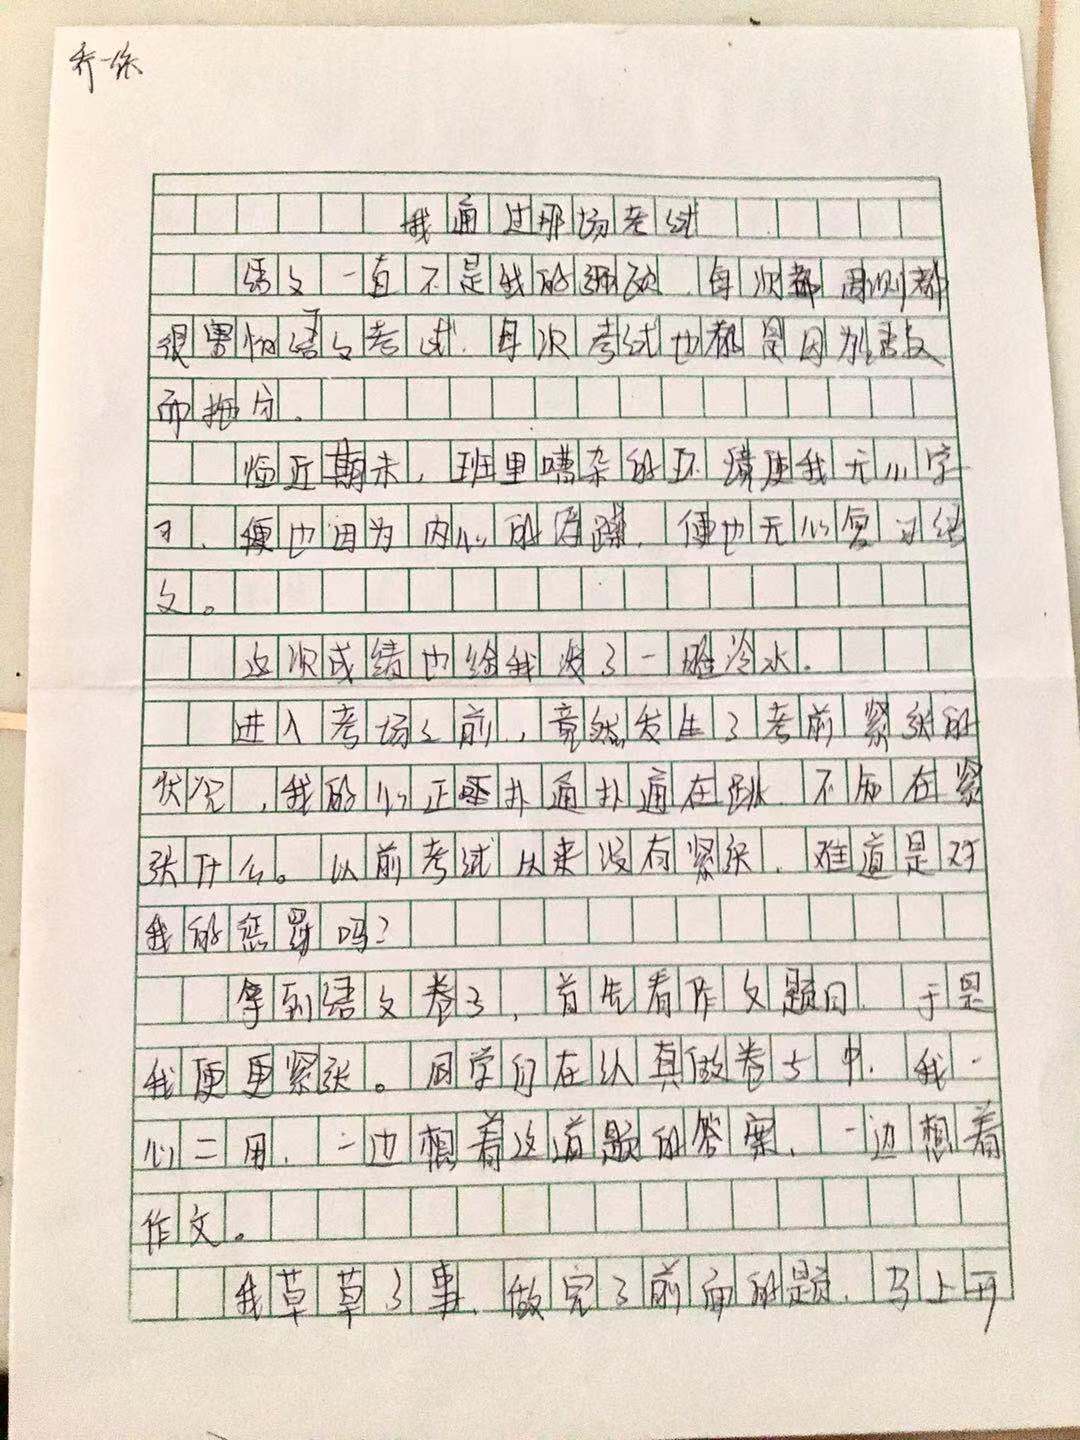 乔一
我通过那场考试
语文一直不是我的强项，每次都 都
很害怕语文考试，每次考试也都是因为语文
而拖分。
临近期末，班里嘈杂的环境使我无心学
习，便也因为内心的 躁，便也无心复习语
文。
这次成绩也给我泼了一 冷水。
进入考场之前，竟然发生了考前紧张的
状况，我的心正 扑通扑通在跳，不知在紧
张什么。以前考试从来没有紧张，难道是对
我的惩罚吗？
拿到语文卷子，首先看作文题目，于是
我便更紧张。同学们在认真做卷子中，我一
心二用，一边想着这道题的答案，一边想着
作文。
我草草了事，做完了前面的题，马上开